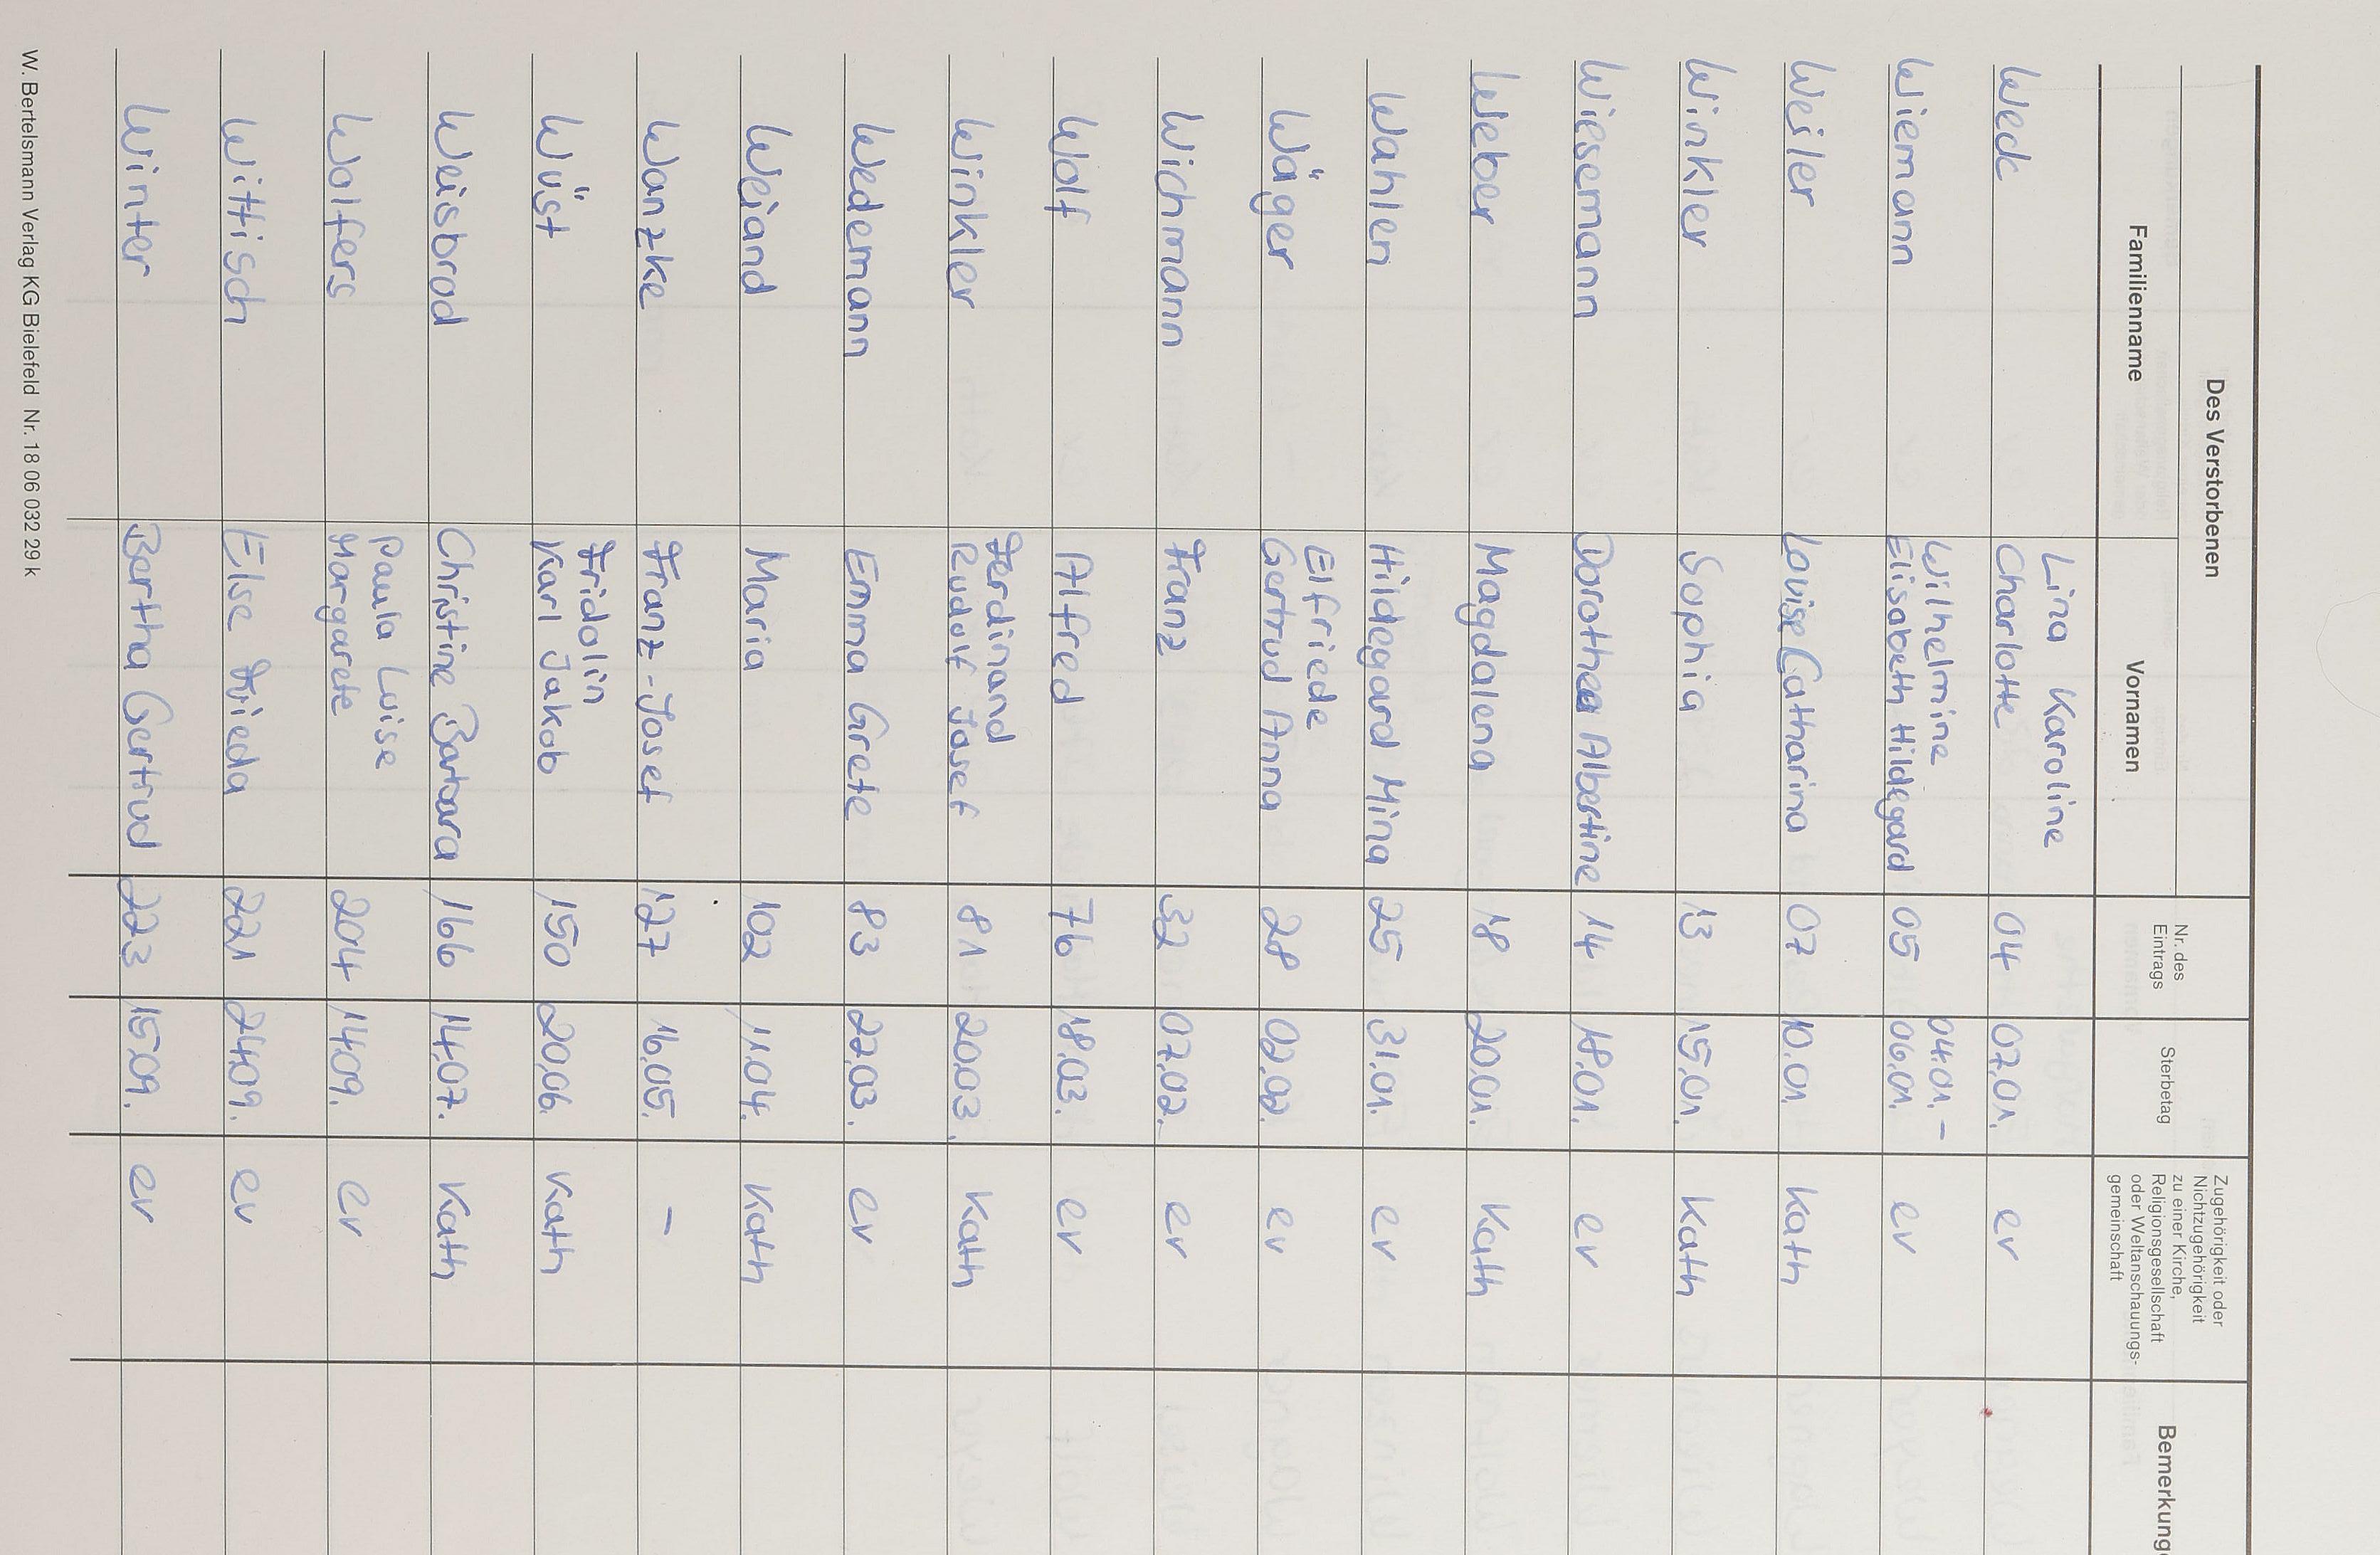 Des Verstorbenen
Familienname Vornamen Nr. des Eintrags Sterbetag Zugehörigkeit oder Nichtzugehörigkeit zu einer Kirche, Religionsgesellschaft oder Weltanschauungs-gemeinschaft Bemerkung
Lina Karoline
Weck Charlotte 04 07.01. ev
Wilhelmine 04.01.-
Wiemann Elisabeth Hildegard 05 06.01. ev
Weiler Louise Catharina 07 10.01. Kath
Winkler Sophia 13 15.01. Kath
Wiesemann Dorothea Albertine 14 18.01. ev
Weber Magdalena 18 20.01. Kath
Wahlen Hildegard Mina 25 31.01. ev
Elfriede
Wäger Gertrud Anna 28 02.02. ev
Wichmann Franz 32 07.02. ev
Wolf Alfred 76 18.03. ev
Ferdinand
Winkler Rudolf Josef 81 20.03. Kath
Wedemann Emma Grete 83 22.03. ev
Weiand Maria 102 11.04. Kath
Wanzke Franz-Josef 127 16.05. -
Fridolin
Wüst Karl Jakob 150 20.06. Kath
Weisbrod Christine Barbara 166 14.07. Kath
Paula Luise
Wolfers Margarete 204 14.09. ev
Wittisch Else Frieda 221 24.09. ev
Winter Bertha Gertrud 223 15.09. ev
W. Bertelsmann Verlag KG Bielefeld Nr. 18 06 032 29 k